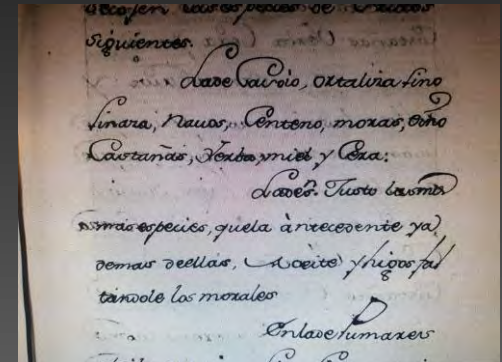 decojen las especies de frutos
siguientes.
La de Pavoio, Ortaliza fino
linaza, Nauos, Centeno, moxas, otño
Castañas, Yerba, miel y Cera;
La de Sn. Justo las mā
smas especies, que la àntecedente ya
demas de ellas, Aceite, y higos fal
tandole los moxales
En la de Pumares